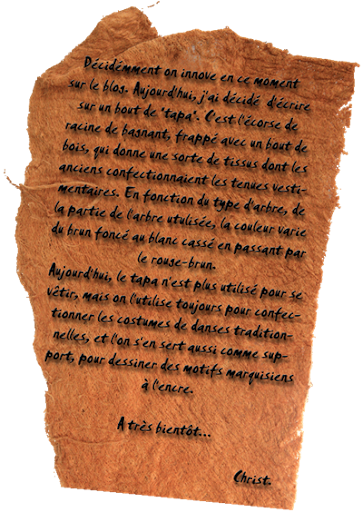 Décidémment on innove en ce moment
sur le blog. Aujourd'hui, j'ai décidé d'écrire
sur un bout de "tapa". C'est l'écorse de
racine de bagnant, frappé avec un bout de
bois, qui donne une sorte de tissus dont les
anciens confectionnaient les tenues vesti-
mentaires. En fonction du type d'arbre, de
la partie de l'arbre utulisée, la couleur varie
du brun foncé au blanc cassé en passant par
le rouge-brun.
Aujourd'hui, le tapa n'est plus utilisé pour se
vêtir, mais on l'utilise toujours pour confec-
tionner les costumes de danses tradition-
nelles, et l'on s'en sert aussi comme sup-
port, pour dessiner des motifs marquisiens
à l'encre.
A très bientôt...
Christ.